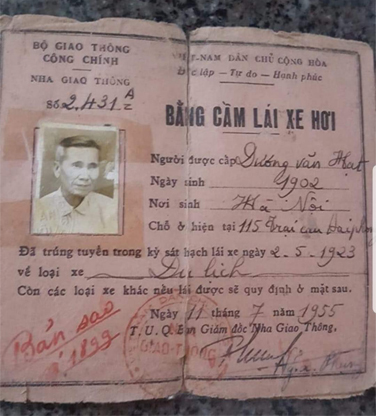 BỘ GIAO THÔNG
CÔNG CHÍNH
NHA GIAO THÔNG
Số 2.431 A
VIỆT-NAM DÂN CHỦ CỘNG HÒA
Độc lập — Tự do — Hạnh phúc
BẰNG CẦM LÁI XE HƠI
Người được cấp Dương văn Hạt
Ngày sinh 1902
Nơi sinh Hà Nội
Chỗ ở hiện tại 115 Trại
Đã trúng tuyển trong kỳ sát hạch lái xe ngày 2-5-1923
về loại xe Du lịch
Còn các loại xe khác nếu lái được sẽ quy định ở mặt sau.
Ngày 11 tháng 7 năm 1955
T.U.Q. Ban Giám đốc Nha Giao Thông.
Bản sao
1899
GIAO-THÔNG